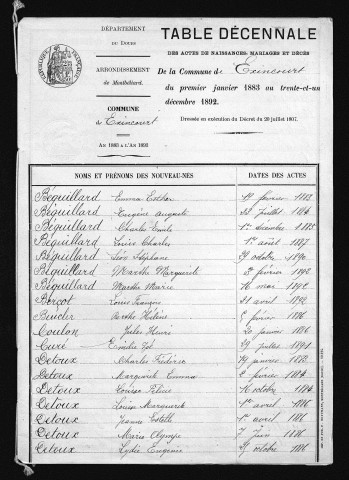 DÉPARTEMENT
DU DOUBS
ARRONDISSEMENT
de Montbéliard.
COMMUNE
d'Exincourt
AN 1883 à L'AN 1893
TABLE DÉCENNALE
DES ACTES DE NAISSANCES, MARIAGES ET DÉCÈS
De la Commune d'Exincourt
du premier janvier 1883 au trente-et-un
décembre 1892.
Dressée en exécution du Décret du 20 juillet 1807.
NOMS ET PRÉNOMS DES NOUVEAU-NÉS DATES DES ACTES
Béguillard Emma Esther février 1883
Béguillard Eugène Auguste juillet 1884
Béguillard Charles Emile 1er décembre 1885
Béguillard Louis Charles 1er août 1887
Béguillard Léon Stéphane 29 octobre 1890
Béguillard Marthe Marguerite 2 février 1892
Béguillard Marthe Marie 16 mai 1892
Berçot Louis François 21 avril 1892
Beucler Berthe Hélène 2 février 1886
Coulon Jules Henri 20 janvier 1886
Curé Emilie Zoé 29 juillet 1891
Detoux Charles Frédéric 29 janvier
Detoux Marguerite Emma 2 février 1884
Detoux Louise 16 octobre 1884
Detoux Louise Marguerite 1er avril 1886
Detoux Jeanne Estelle 1er avril 1886
Detoux Marie Olympe 7 juin 1886
Detoux Lydie Eugénie octobre 1886